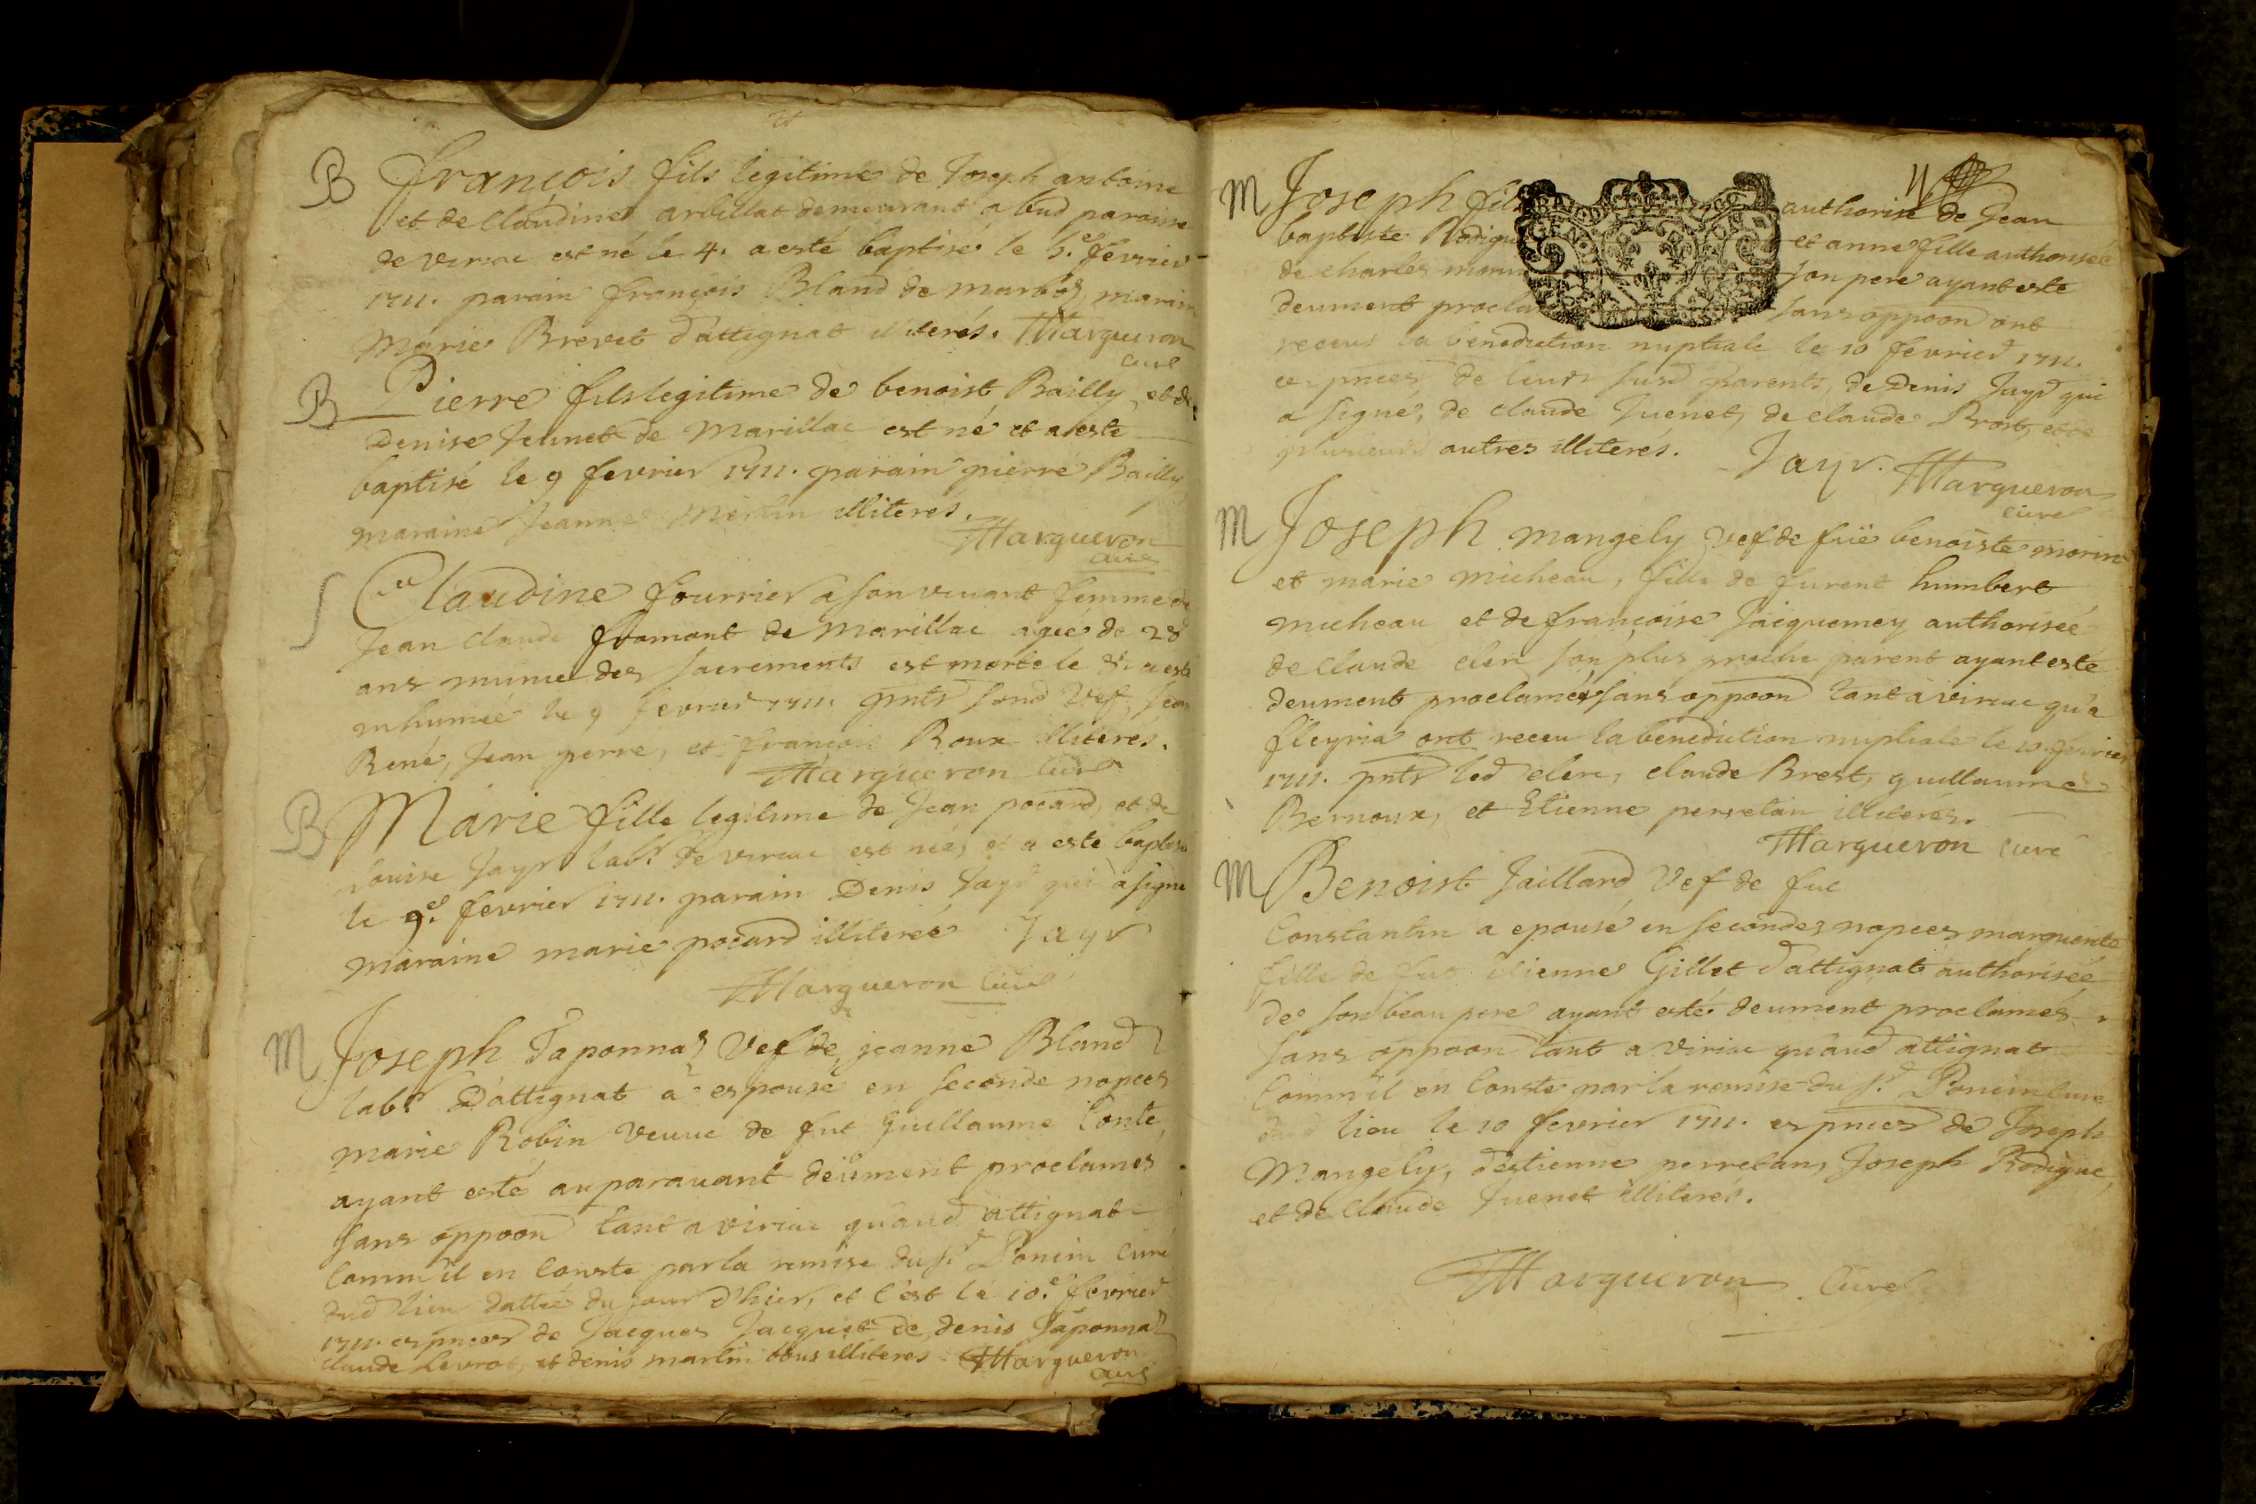 B François fils legitime de Joseph antoine
et de Claudine arbillat demeurant a bud paroisse
de viriac est né le 4. a esté baptisé le 5.e fevrier
1711. parain françois Bland de marboz, marain
Marie Brevet d'attignat illiterés. Margueron
curé
B Pierre fils legitime de benoist Bailly, et de
Denise Juenet de Marillac est né et a esté
baptisé le 9 fevrier 1711. parain pierre Bailly
maraine Jeanne illiterés.
Margueron
curé
S Claudine fourrier a son vivant femme de
Jean claude fromont de Marillac agée de 28
ans munie des sacrements est morte le 8. a esté
inhumée le 9 fevrier 1711. pnts sond vef, Jean
René, Jean pierre, et françois Roux illiterés.
Margueron curé
B Marie fille legitime de Jean pocard, et de
Louise Jayr labr de viriac est née, et a esté baptisée
le 9.e fevrier 1711. parain Denis Jayr qui a signé
maraine marie pocard illiterée Jayr
Margueron curé
M Joseph Taponnaz Vef de jeanne Bland
labr D'attignat a espousé en seconde nopces
marie Robin veuve de fut guillaume Conte,
ayant esté auparavant deüment proclamés
sans oppoon tant a viriac qu'aud attignat
comm'il en conste par la remise du sr. Poncin curé
dud lieu dattée du jour d'hier, et c'est le 10.e fevrier
1711. es pnces de Jacques Jacquet de denis Taponnaz
claude Levrat, et denis martin tous illiteres. Margueron
curé
11
M Joseph fils authorisé de Jean
baptiste Rodigue et anne fille authorisée
de charles son pere ayant esté
deument procla sans oppoon ont
receus la benediction nuptiale le 10 fevrier 1711.
es pnces de leurs susd parents, de Denis Jayr qui
a signé, de claude Juenet, de claude Brost, et de
plusieurs autres illiterés. Jayr. Margueron
curé
M Joseph mangely vef de fuë benoiste morin
et marie micheau, fille de furent humbert
micheau et de françoise Jacquemey authorisée
de claude clerc son plus proche parent ayant esté
deument proclamés sans oppoon tant a viriac qu'a
fleyria ont receu la benediction nuptiale le 10. fevrier
1711. pnts led clerc, claude Brest, guillaume
Bernoux, et Etienne perretan illiterés.
Margueron curé
M Benoist Jaillard Vef de fue
Constantin a epousé en secondes nopces marguerite
fille de fut etienne Gillet d'attignat authorisée
de son beau pere ayant esté deument proclamés
sans oppoon tant a viriac qu'aud attignat
Comm'il en conste par la remise du sr. Poncin curé
dud lieu le 10 fevrier 1711. es pnces de Joseph
Mangely, d'estienne perretan, Joseph Rodigue,
et de Claude Juenet illiterés.
Margueron Curé